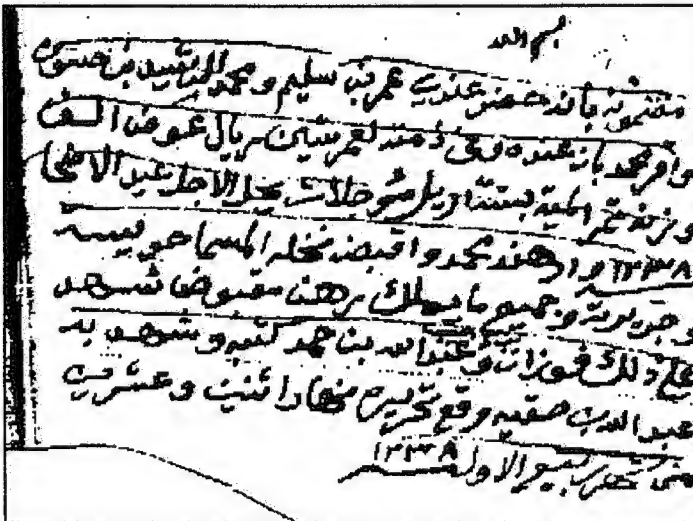 بسم الله
مضمونه بانه حضر عندي عمر بن سليم ومحمد الرشيد بن
واقر محمد بان عنده وفي ذمته لعمر ستين ريال عوض الف
وزنة تمر المية بستة اريل مؤجلات يحل الاجل عيد الاضحا
١٣٣٨ وارهنه محمد واقبضه نخله المسما حويسه
وجريرية وجميع ما يملك برهن مقبوض شهد
على ذلك فوزان وعبدالله بن حمد كتبه وشهد به
عبدالله بن وقع تحريره نهار اثنين وعشرين
من شهر ربيع الاول ١٣٣٨